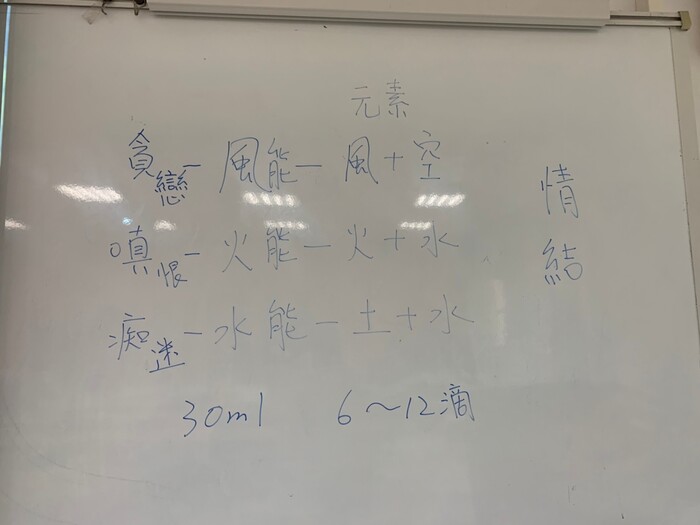 元素
貪戀-風能-風+空
嗔恨-火能-火+水
痴迷-水能-土+水
情結
30ml 6～12滴